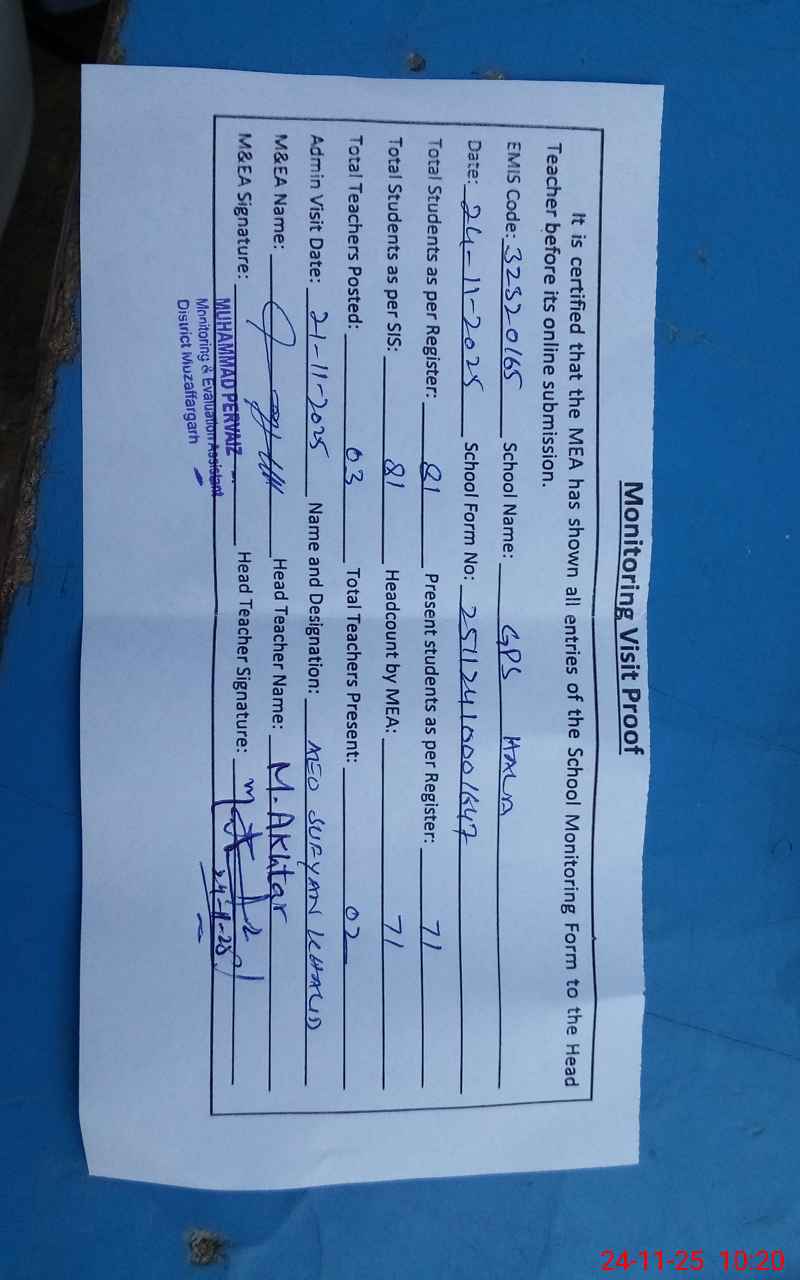 Monitoring Visit Proof
It is certified that the MEA has shown all entries of the School Monitoring Form to the Head
Teacher before its online submission.
EMIS Code: 32320165 School Name: GPS HALIA
Date: 24-11-2025 School Form No: 251124100001647
Total Students as per Register: 81 Present students as per Register: 71
Total Students as per SIS: 81 Headcount by MEA: 71
Total Teachers Posted: 03 Total Teachers Present: 02
Admin Visit Date: 21-11-2025 Name and Designation: AEO SUFYAN KHALID
M&EA Name: Head Teacher Name: M. Akhtar
M&EA Signature: Head Teacher Signature:
24-11-25
MUHAMMAD PERVAIZ
Monitoring & Evaluation Assistant
District Muzaffargarh
24-11-25 10:20